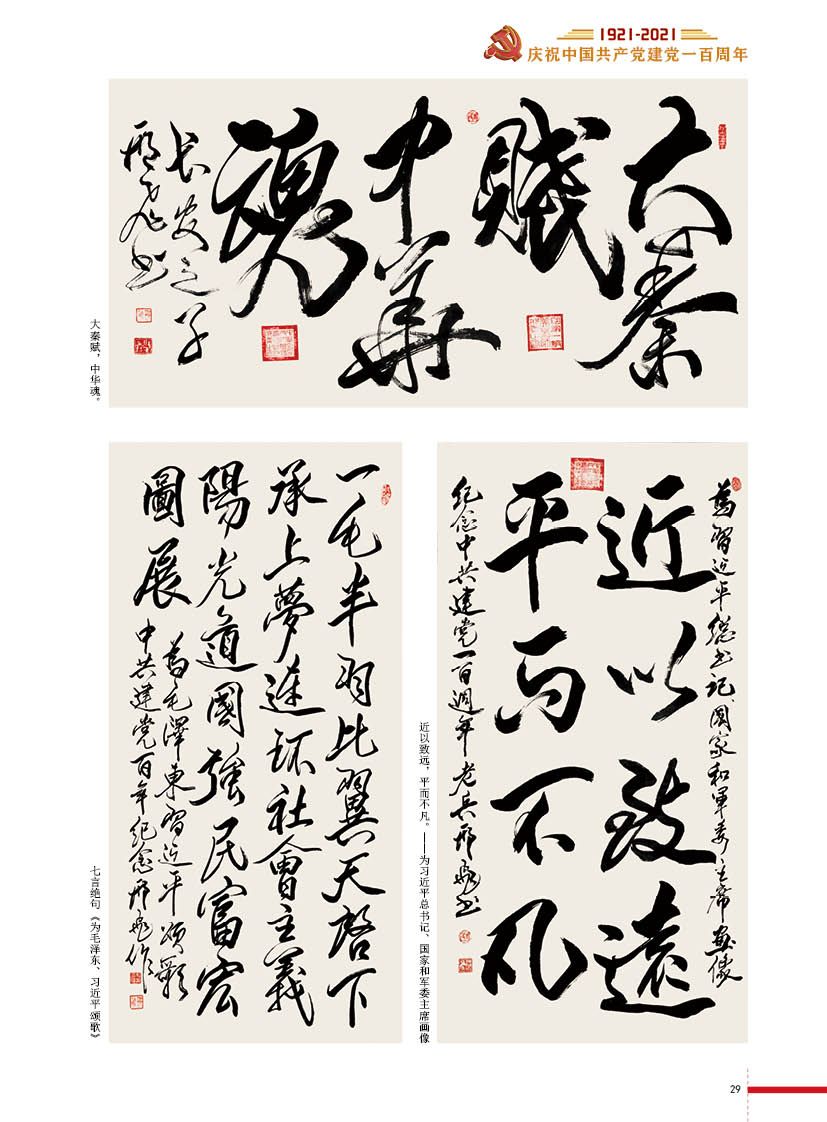 1921-2021
庆祝中国共产党建党一百周年
大秦
賦
中華
魂
长安之子
邢飛书
大秦赋，中华魂。
为習近平總书记國家和軍委主席畫像
近以致遠
平而不凡
纪念中共建党一百週年 老兵邢飛书
近以致远，平而不凡。——为习近平总书记、国家和军委主席画像
一毛半羽比翼天啓下
承上夢連环社會主義
陽光道國強民富宏
圖展 为毛澤東習近平頌歌
中共建党百年纪念邢飛作
七言绝句《为毛泽东、习近平颂歌》
29